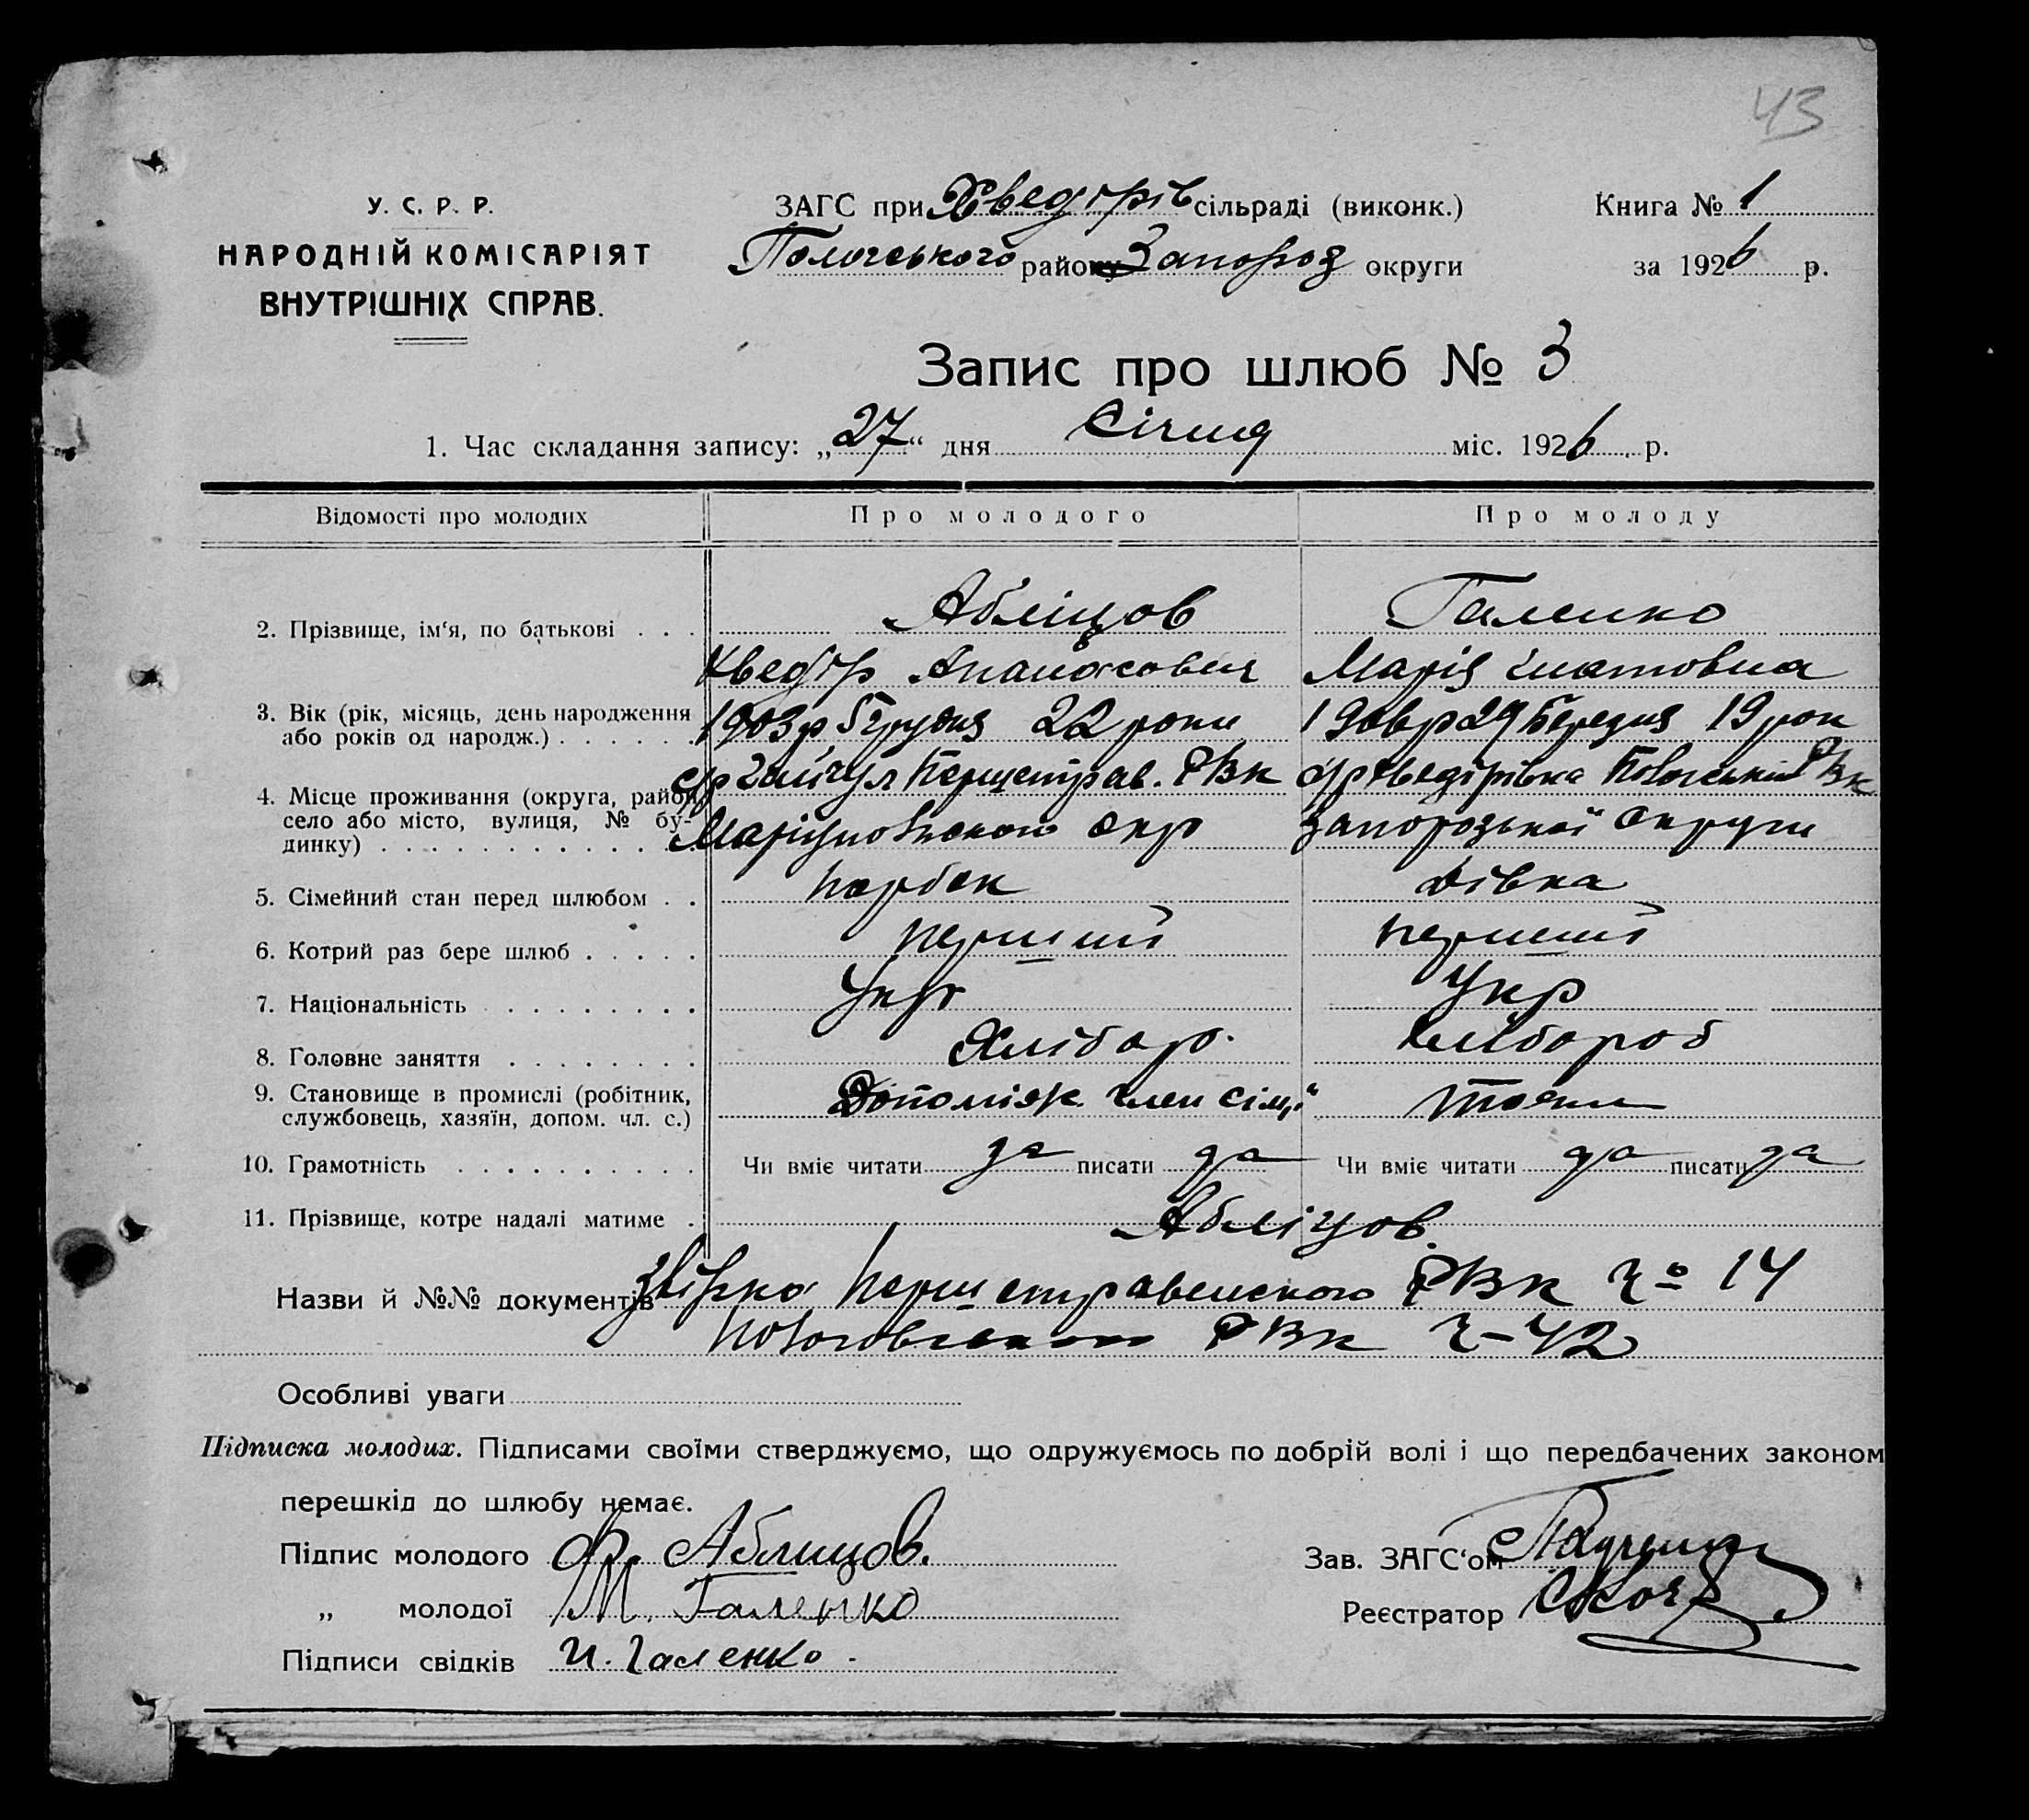 43
У. С. Р. Р.
НАРОДНІЙ КОМІСАРІЯТ
ВНУТРІШНІХ СПРАВ.
ЗАГС при Хведорів сільраді (виконк.) Книга № 1
Пологського району Запороз округи за 1926 р.
Запис про шлюб № 3
1. Час складання запису: „27“ дня Січня міс. 1926 р.
Відомості про молодих Про молодого Про молоду
2. Прізвище, ім‘я, по батькові . . . Абліцов Галенко
Хведір Апанасович Марія
3. Вік (рік, місяць, день народження 1903 р 5 грудня 22 роки 1906 р 29 березня 19 рок
або років од народж.) . . . . . .
с/р Гайчул Першетрав. РВК с/р Хведірівка Пологський РВК
4. Місце проживання (округа, район,
село або місто, вулиця, № бу-
динку) . . . . . . . . . . . . Маріупольского окр Запорозької Округи
5. Сімейний стан перед шлюбом . . парубок дівка
6. Котрий раз бере шлюб . . . . . перший перший
7. Національність . . . . . . . . Укр Укр
8. Головне заняття . . . . . . . Хлібор. хлібороб
9. Становище в промислі (робітник,
службовець, хазяїн, допом. чл. с.) Допоміж член сімї
10. Грамотність . . . . . . . . . . Чи вміє читати да писати да Чи вміє читати да писати да
11. Прізвище, котре надалі матиме . Абліцов
Назви й №№ документів Першетравенского РВК Ч° 14
Пологовского РВК Ч-42
Особливі уваги
Підписка молодих. Підписами своїми стверджуємо, що одружуємось по добрій волі і що передбачених законом
перешкід до шлюбу немає.
Підпис молодого Ф. Аблицов. Зав. ЗАГС‘ом
„ молодої М. Галенко Реєстратор
Підписи свідків И. Галенко.